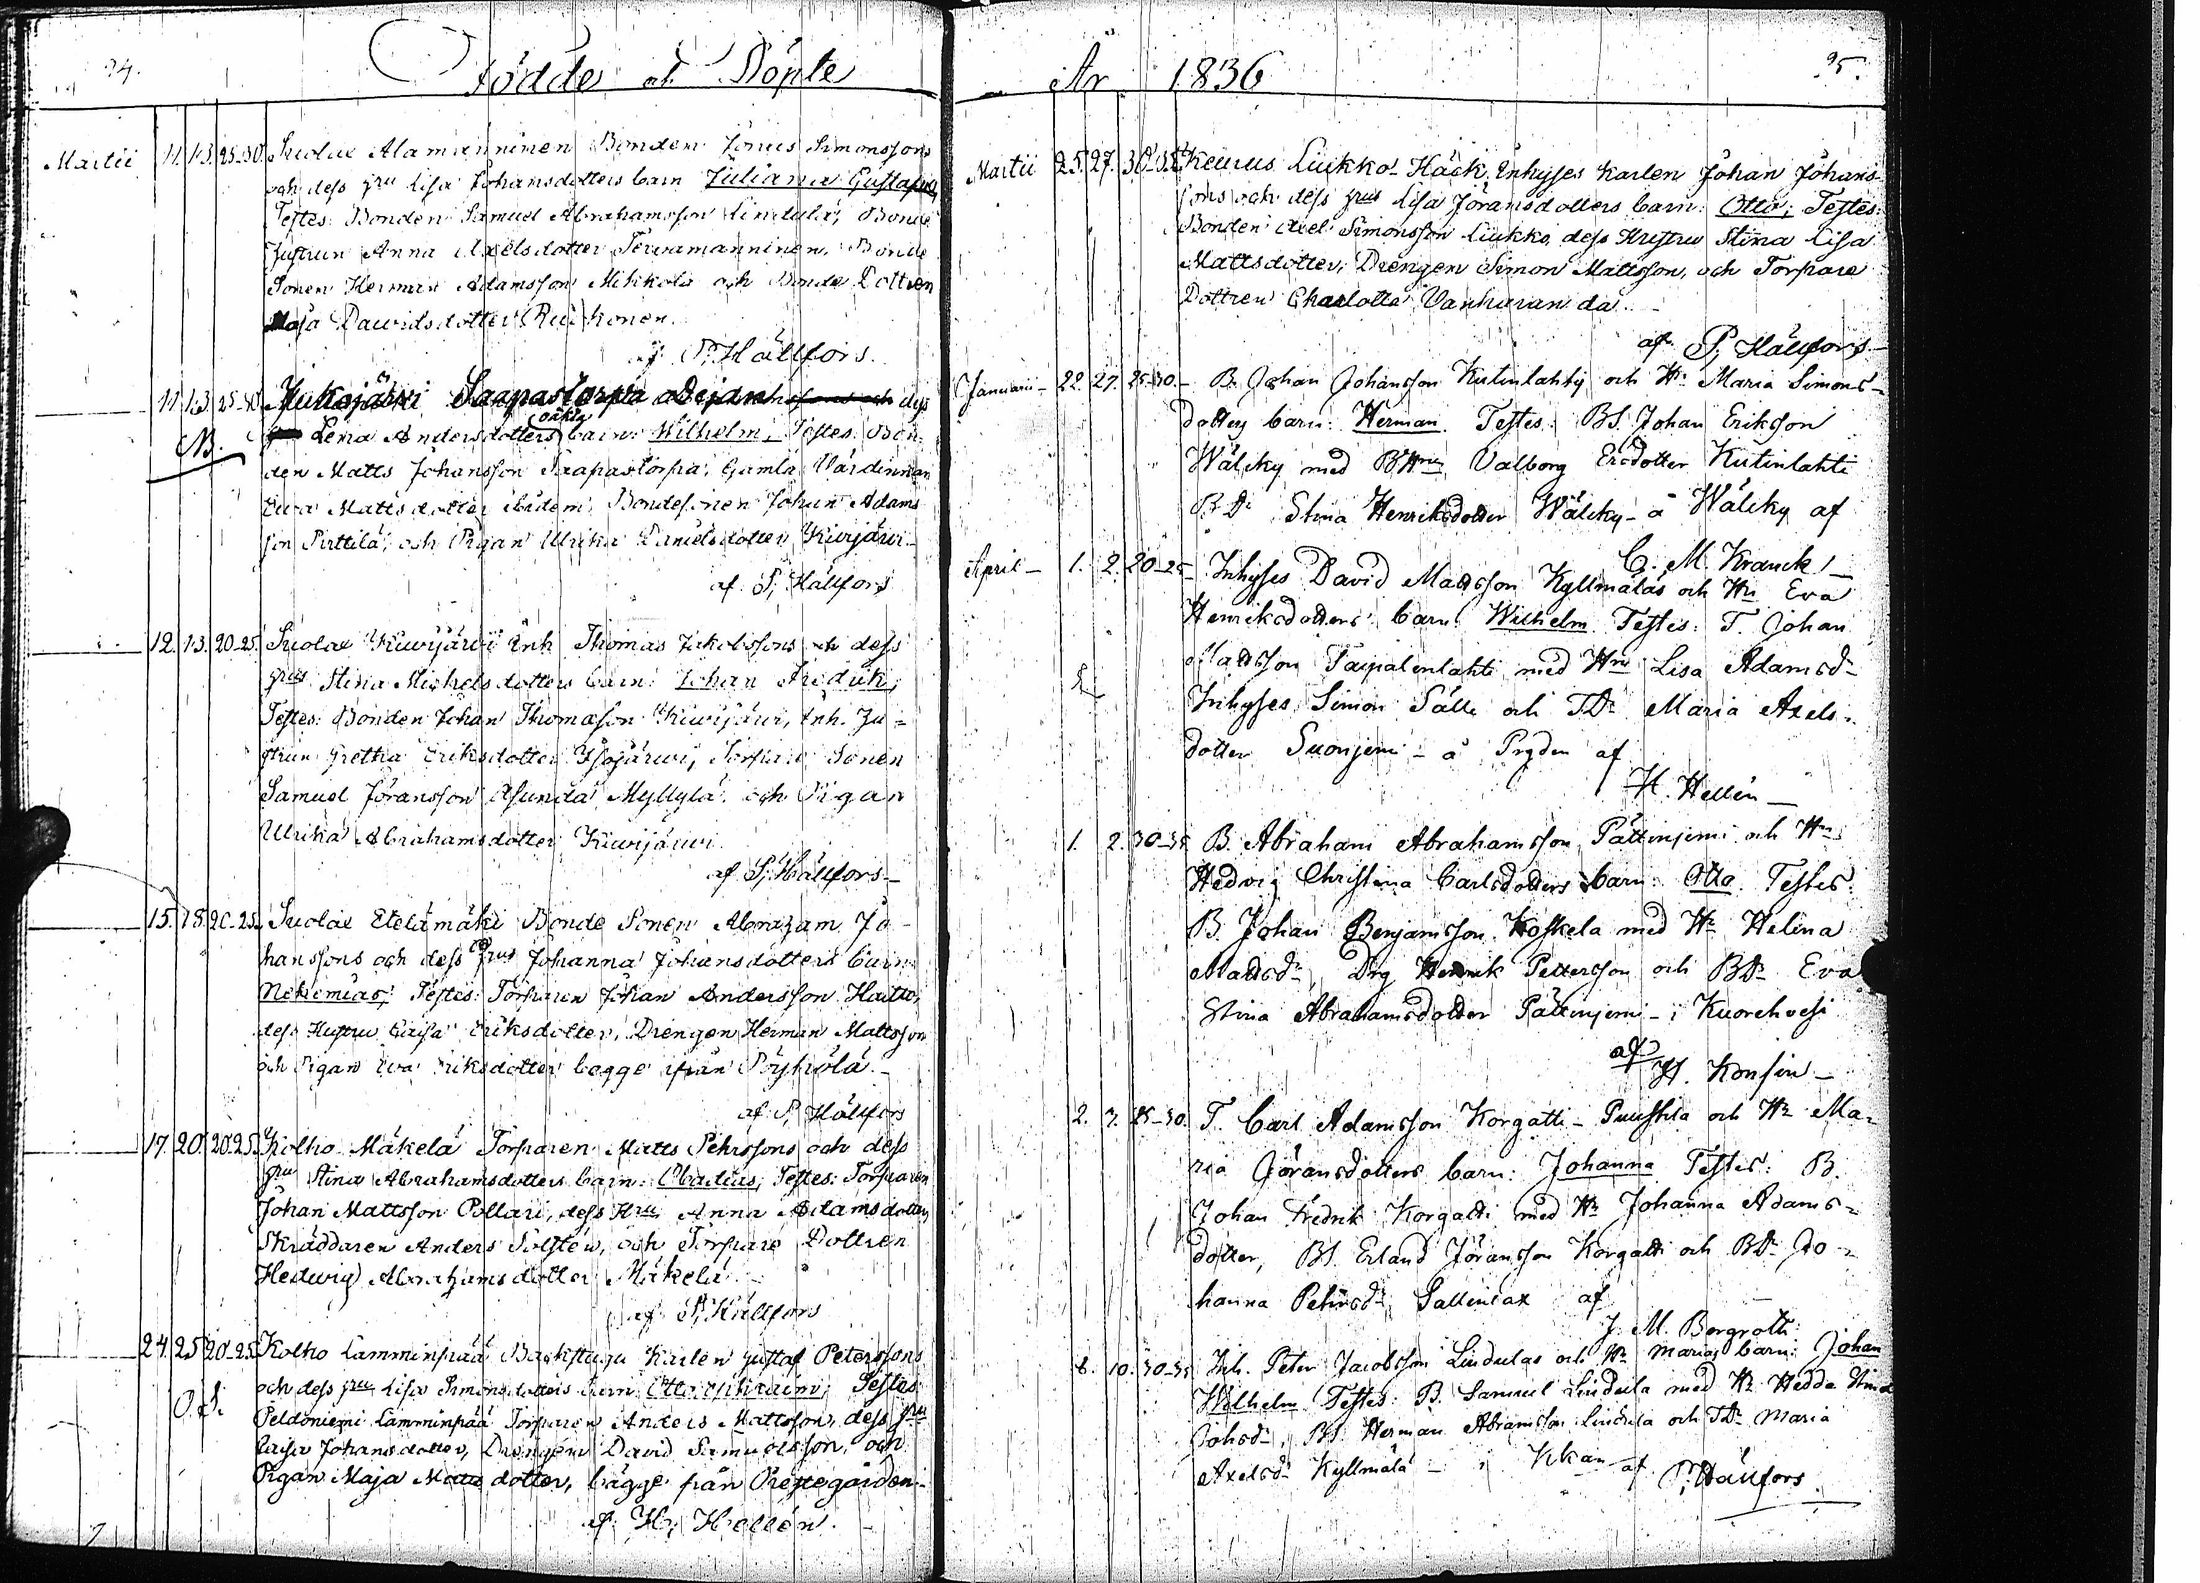 94.
Födde och Döpte
Martii 11. 13. 25-30. Suolax Alamanninen Bonden Jonas Simonssons
och dess Hru Lisa Johansdotters barn Juliana Gustafva,
Testes: Bonden Samuel Abrahamsson Lindula, Bonde
Hustrun Anna Axelsdotter Perramanninen, Bonde
Sonen Herman Adamsson Mikkola och Bonde Dottren
Maja Davidsdotter Ruikonen.
af P. Hällfors.
11. 13. 25-30. Kukojärwi Saapastorpa dess
NB. Lena Andersdotters oäkta barn: Wilhelm, Testes: Bon-
den Matts Johansson Saapastorpa, Gamla Värdinnan
Ewa Mattsdotter ibidem, Bondesonen Johan Adams
son Pirttilä, och Pigan Ulrika Danielsdotter Kiwijärwi.
af P. Hällfors
12. 13. 20-25. Suolax Kiwijärwi Inh Thomas Jakobssons och dess
Hrus Stina Michelsdotters barn: Johan Fredrik,
Testes: Bonden Johan Thomasson Kiwijärwi, Inh. Hu-
strun Gretha Eriksdotter Isojärwi, Torpare Sonen
Samuel Jöransson Asunda Myllylä, och Pigan
Ulrika Abrahamsdotter Kiwijärwi
af P. Hällfors
15. 18. 20-25. Suolax Etelämäki Bonde Sonen Abraham Jo-
hanssons och dess Hrus Johanna Johansdotters barn
Nehemias, Testes: Torparen Johan Andersson Haitto,
dess Hustru Caisa Eriksdotter, Drengen Herman Mattsson
och Pigan Eva Eriksdotter bägge ifrån Pöyhölä.
af P. Hällfors
17. 20. 20-25. Kolho Mäkelä Torparen Matts Pehrssons och dess
Hru Stina Abrahamsdotters barn: Obadias, Testes: Torparen
Johan Mattsson Pollari, dess Hru Anna Adamsdotter,
Skräddaren Anders Solsten, och Torpare Dottren
Hedwig Abrahamsdotter Mäkelä
af P. Hällfors
24. 25. 20-25. Kolho Lamminpää Backstugu Karlen Gustaf Peterssons
och dess Hru Lisa Simonsdotters barn Otto Ephraim, Testes
Peldoniemi Lamminpää Torparen Anders Mattsson, dess Hru
Caisa Johansdotter, Drengen David Samuelsson, och
Pigan Maja Mattsdotter, bägge från Prestegården.
af H. Hellén.
År 1836
95.
Martii 25. 27. 30-35. Keurus Liukko-Häck Inhyses Karlen Johan Johans-
sons och dess Hrus Lisa Jöransdotters barn: Otto, Testes:
Bonden Axel Simonsson Liukko, dess Hustru Stina Lisa
Mattsdotter, Drengen Simon Mattsson, och Torpare
Dottren Charlotta Vanharanda.
af P. Hällfors.
Januarii 22. 27. 25-30. B. Johan Johansson Kutinlahty och Hr Maria Simons-
dotters barn: Herman. Testes: BS. Johan Eriksson
Wälcky med BHru Valborg Ersdotter Kutinlahti
BDr Stina Henriksdotter Wälcky - å Wälcky af
C. M. Kranck
April 1. 2. 20-25. Inhyses David Madsson Kyllmäläs och Hru Eva
Henriksdotters barn: Wilhelm. Testes: T. Johan
Madsson Taipalenlahti med Hru Lisa Adamsdr
Inhyses Simon Pälle och TDr Maria Axels-
dotter Suonjemi - å Pryden af
H. Hellén
1. 2. 30-35. B. Abraham Abrahamsson Pättinjemi och Hrs
Hedvig Christina Carlsdotters barn: Otto. Testes:
B. Johan Benjamsson Koskela med Hr Helena
Madsdr, Drg Henrik Pettersson och BDr Eva
Stina Abrahamsdotter Pättinjemi - i Kuorehvesi
af
H. Konsin
2. 3. 25-30. T. Carl Adamsson Korgatti-Puustila och Hr Ma-
ria Göransdotters barn: Johanna Testes: B.
Johan Fredrik Korgatti med Hr Johanna Adams-
dotter, BS. Erland Jöransson Korgatti och BDr Jo-
hanna Petersdr Sallinlax af
J. M. Bergroth
8. 10. 30-35. Inh. Peter Jacobsson Lindulas och Hr Marias barn: Johan
Wilhelm Testes: B. Samuel Lindula med Hr Hedda Stina
Johsdr, BS. Herman Abramsson Lindula och TDr Maria
Axelsdr Kyllmälä - i Kkan af P. Hällfors